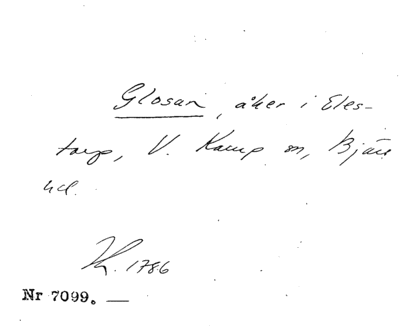 Glosan, åker i Eles-
torp, V. Karup sn, Bjäre
hd.
Kt. 1786
Nr 7099. —